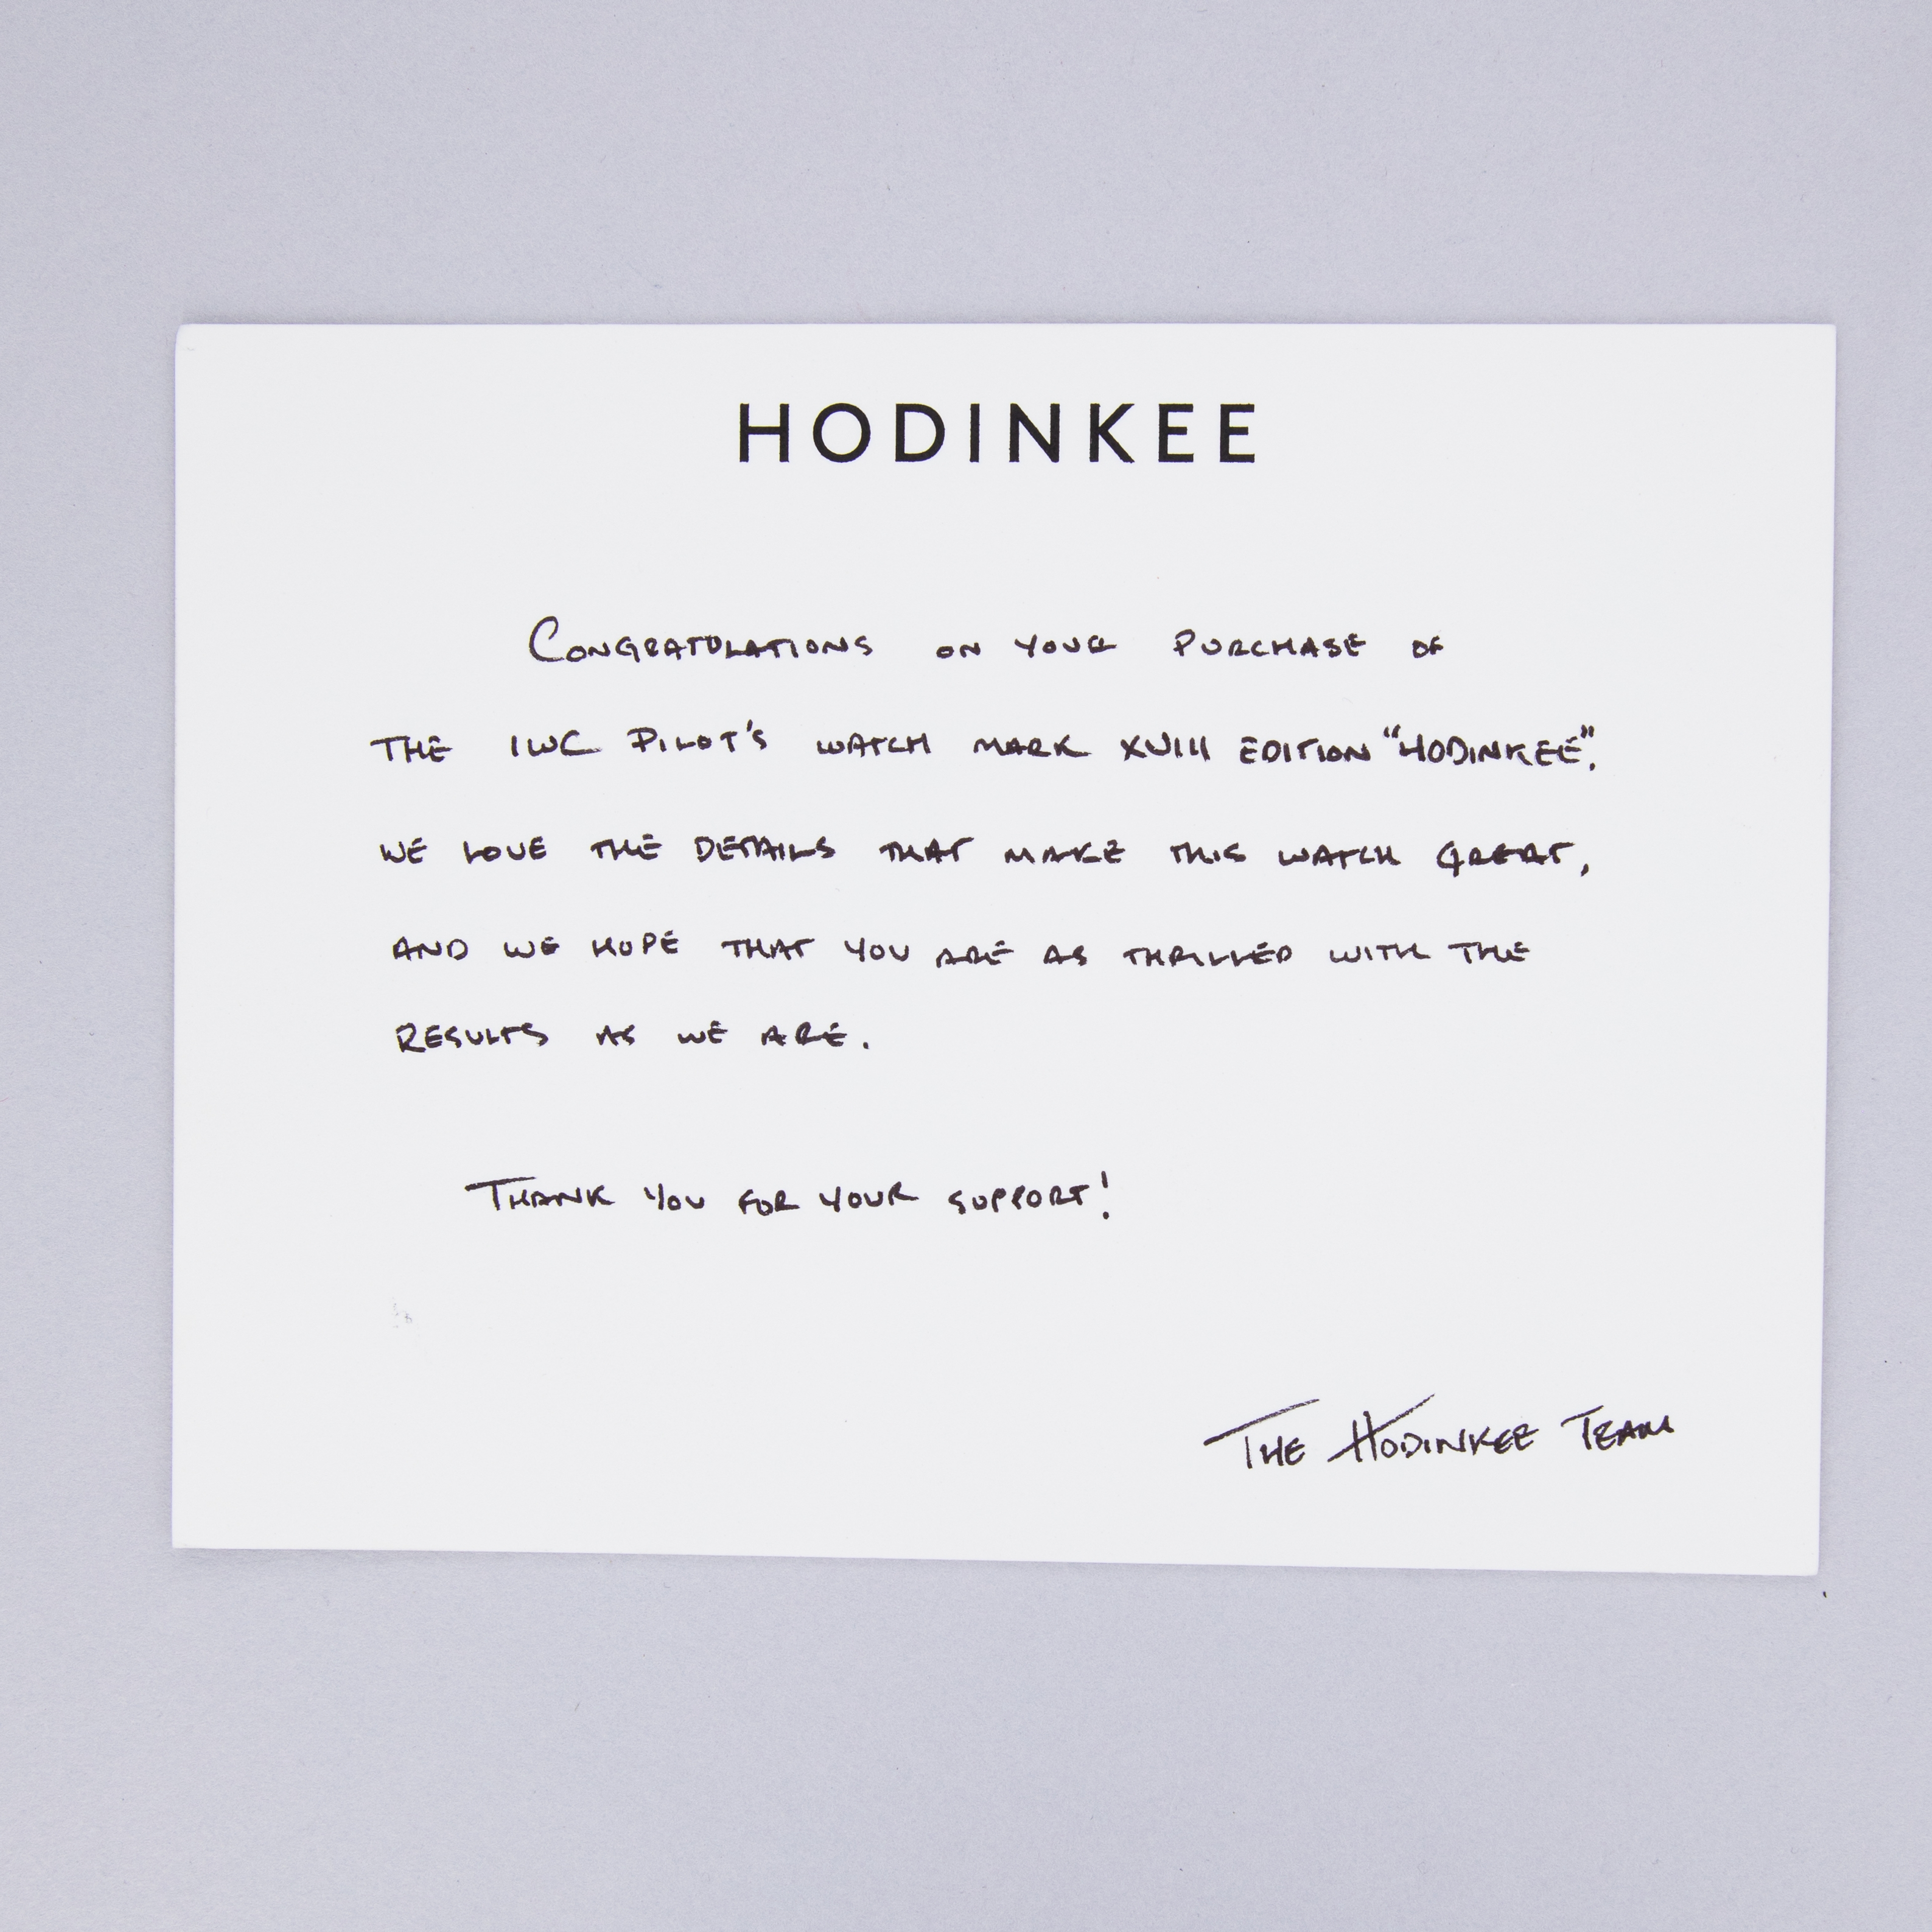 HODINKEE
CONGRATULATIONS ON YOUR PURCHASE OF
THE IWC PILOT'S WATCH MARK XVIII EDITION "HODINKEE".
WE LOVE THE DETAILS THAT MAKE THIS WATCH GREAT,
AND WE HOPE THAT YOU ARE AS THRILLED WITH THE
RESULTS AS WE ARE.
THANK YOU FOR YOUR SUPPORT!
THE HODINKEE TEAM